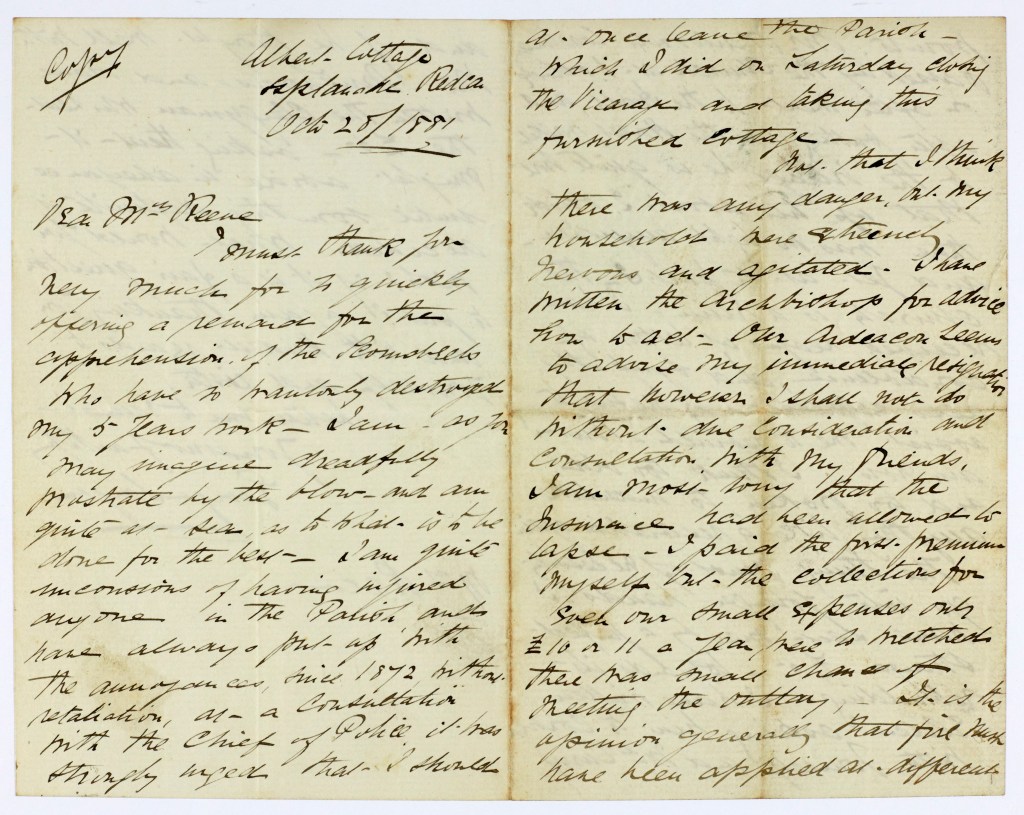 Copy
Albert Cottage
Esplanade Redcar
Oct 28/1881
Dear Mrs Reeve
I must thank you
very much for so quickly
offering a reward for the
apprehension of the Scoundrels
who have so wantonly destroyed
my 5 years work – I am – as you
may imagine dreadfully
prostrate by the blow – and am
quite at – sea, as to what is to be
done for the best – I am quite
unconsious of having injured
anyone in the Parish and
have always put up with
the annoyances, since 1872 without
retaliation, at – a Consultation
with the Chief of Police it was
strongly urged that I should
at once leave the Parish –
which I did on Saturday closing
the Vicarage and taking this
furnished cottage –
Not that I think
there was any danger, but my
household were extremely
nervous and agitated – I have
written the Archbishop for advice
how to act – Our Ardeacon seems
to advise my immediate resignation
that however I shall not do
without due Consideration and
Consultation with my friends.
I am most sorry that the
Insurance had been allowed to
lapse – I paid the first premium
myself but the collections for
even our small expenses only
£10 or 11 a year, were so wretched
there was small chance of
meeting the outlay, – It is the
opinion generally that fire must
have been applied at different